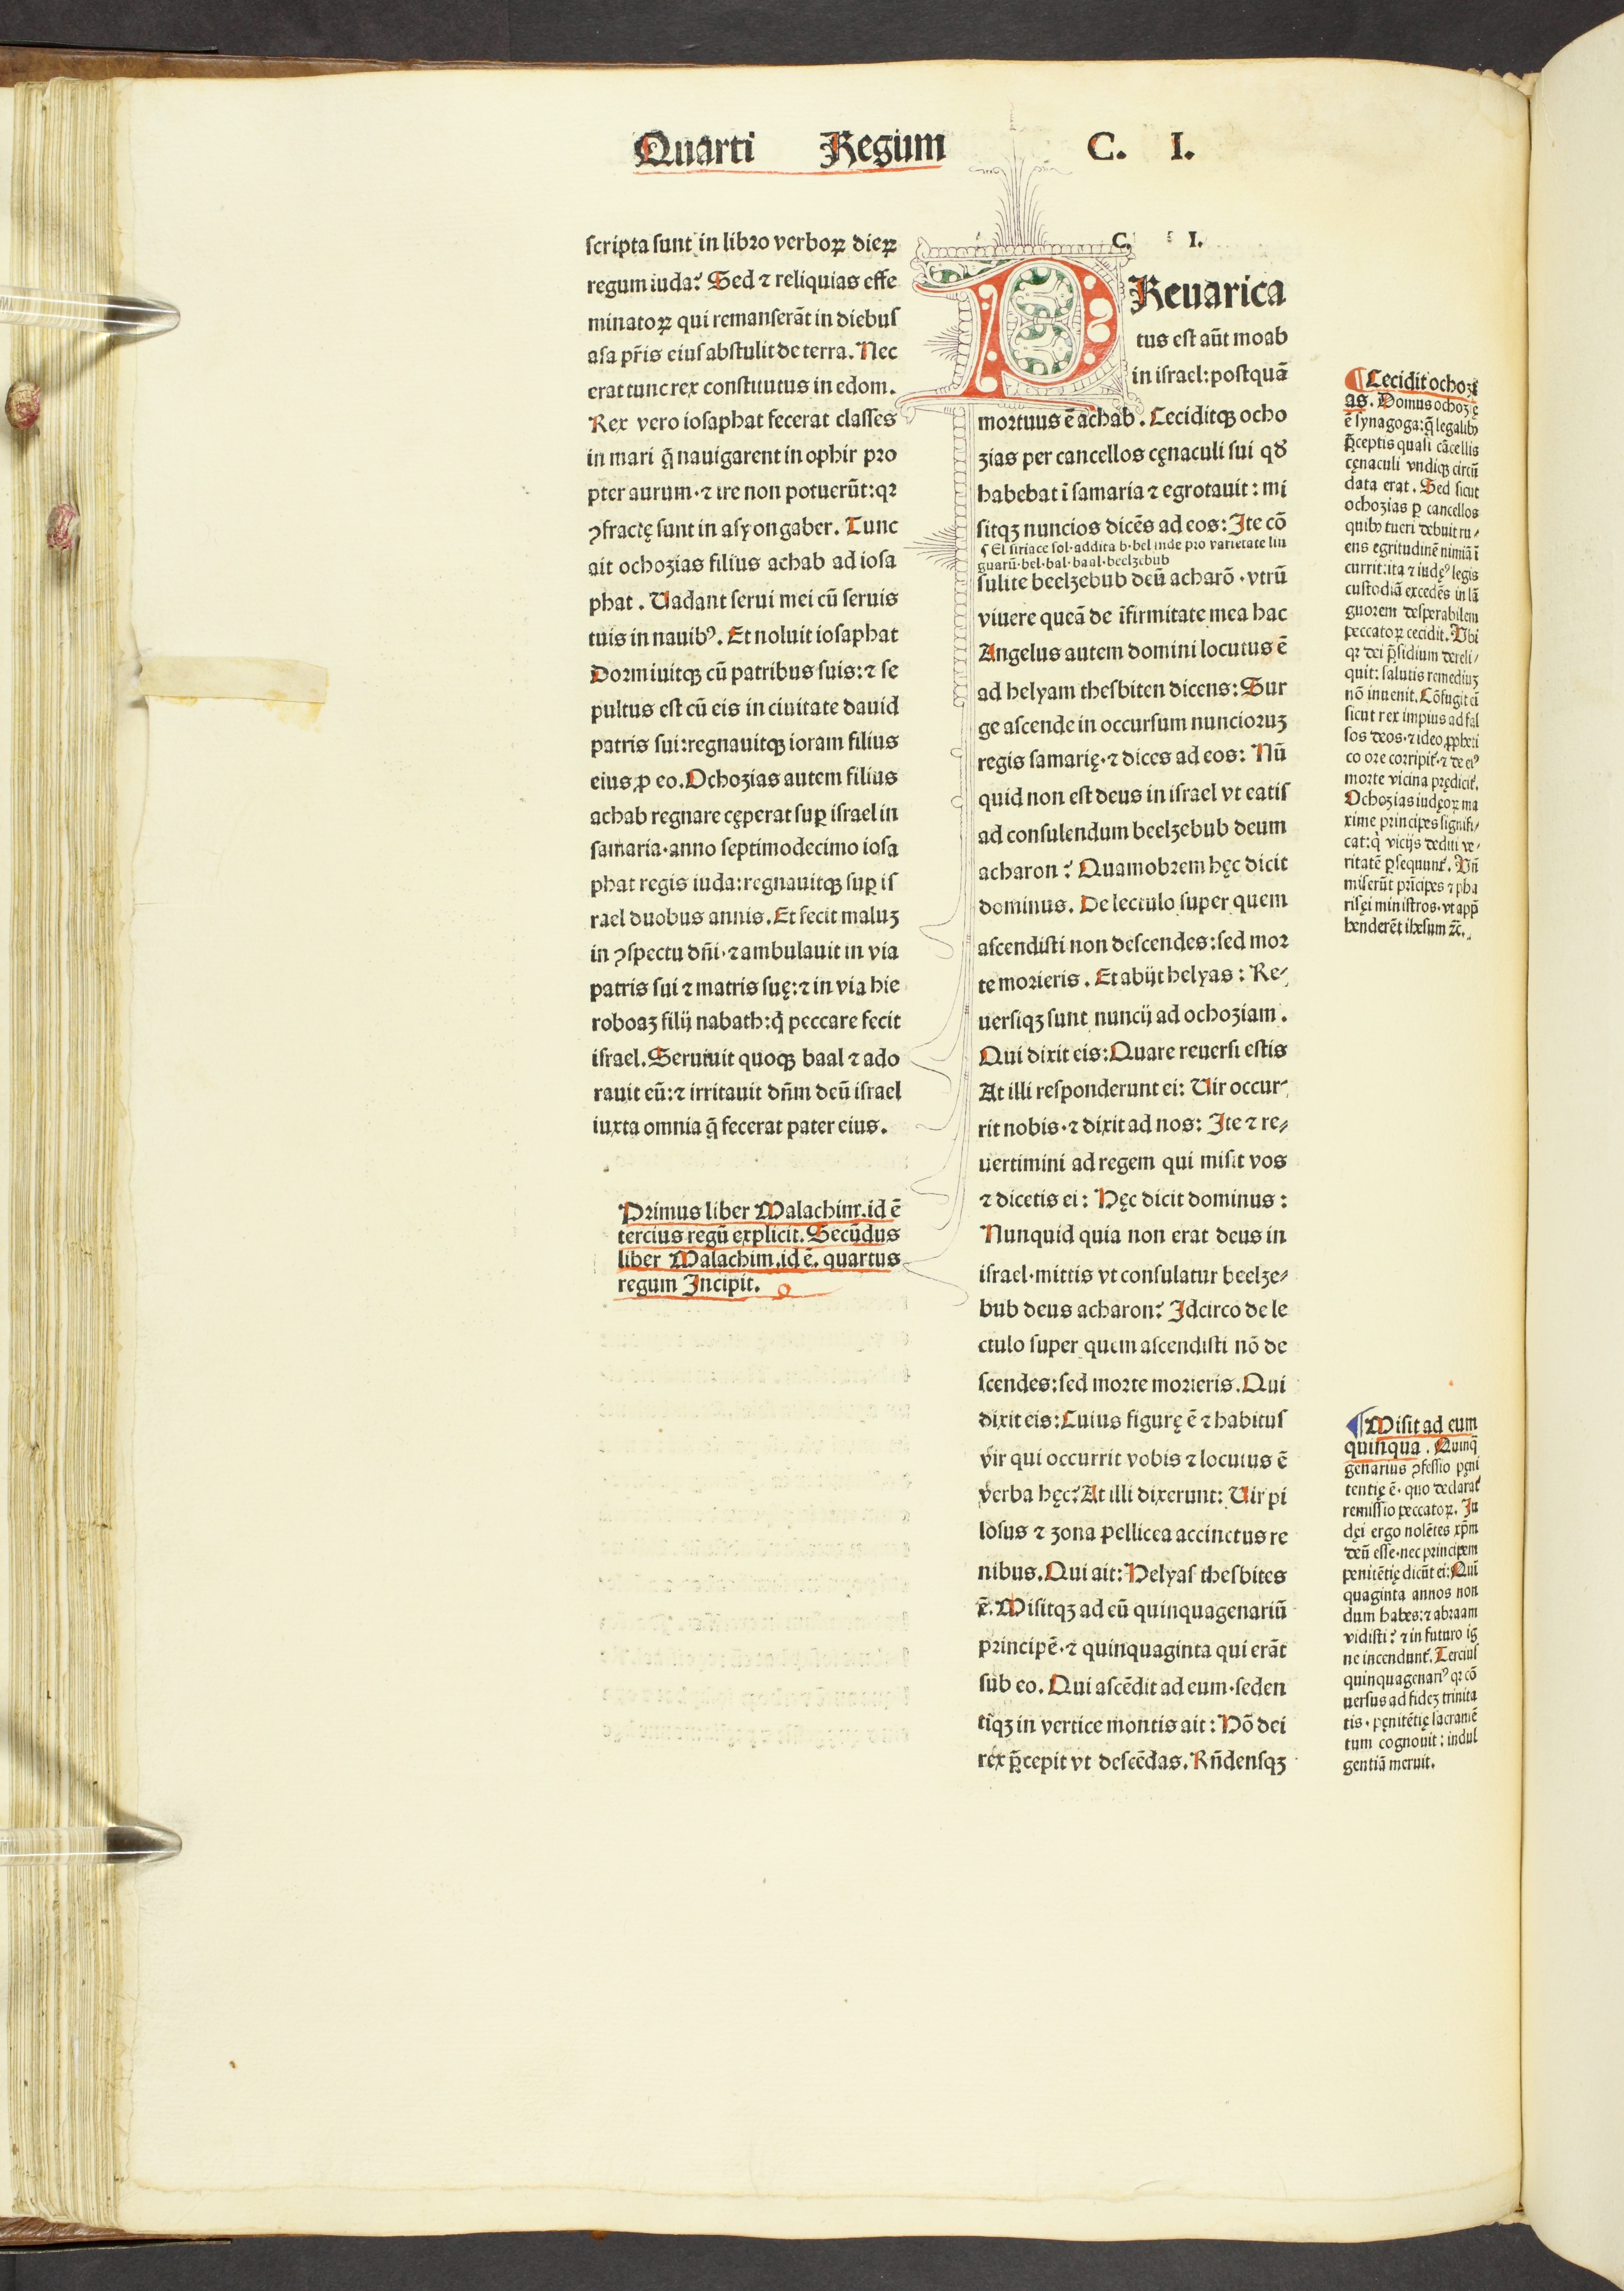 Quarti Regum C. I.
scripta sunt in libro verboꝝ dieꝝ
regum iuda? Sed ⁊ reliquias effe
minatoꝝ qui remanserāt in diebus
asa pr̄is eius abstulit de terra. Nec
erat tunc rex constitutus in edom.
Rex vero iosaphat fecerat classes
in mari q̄ nauigarent in ophir pro
pter aurum·⁊ ire non potuerūt:qꝛ
ꝯfractę sunt in asyongaber. Tunc
ait ochozias filius achab ad iosa
phat. Uadant serui mei cū seruis
tuis in nauibꝰ. Et noluit iosaphat
Dormiuitqꝫ cū patribus suis:⁊ se
pultus est cū eis in ciuitate dauid
patris sui:regnauitqꝫ ioram filius
eius ꝓ eo. Ochozias autem filius
achab regnare cęperat suꝑ israel in
samaria·anno septimodecimo iosa
phat regis iuda:regnauitqꝫ suꝑ is
rael duobus annis. Et fecit maluꝫ
in ꝯspectu dn̄i·⁊ ambulauit in via
patris sui ⁊ matris suę:⁊ in via hie
roboaꝫ filij nabath:q̇ peccare fecit
israel. Seruiuit quoqꝫ baal ⁊ ado
rauit eū:⁊ irritauit dn̄m deū israel
iuxta omnia q̄ fecerat pater eius.
Primus liber Malachim.id ē
tercius regū explicit. Secūdus
liber Malachim.id ē. quartus
regum Incipit.
C. I.
PReuarica
tus est aūt moab
in israel:postquā
mortuus ē achab. Ceciditqꝫ ocho
zias per cancellos cęnaculi sui qđ
habebat ī samaria ⁊ egrotauit: mi
sitqꝫ nuncios dicēs ad eos: Ite cō
¶ El siriace sol·addita b·bel inde pro varietate lin
guarū·bel·bal·baal·beelzebub
sulite beelzebub deū acharō·vtrū
viuere queā de īfirmitate mea hac
Angelus autem domini locutus ē
ad helyam thesbiten dicens: Sur
ge ascende in occursum nuncioruꝫ
regis samarię·⁊ dices ad eos: Nū
quid non est deus in israel vt eatis
ad consulendum beelzebub deum
acharon? Quamobrem hęc dicit
dominus. De lectulo super quem
ascendisti non descendes:sed mor
te morieris. Et abijt helyas: Re⸗
uersiqꝫ sunt nuncij ad ochoziam.
Qui dixit eis: Quare reuersi estis
At illi responderunt ei: Uir occur⸗
rit nobis·⁊ dixit ad nos: Ite ⁊ re⸗
uertimini ad regem qui misit vos
⁊ dicetis ei: Hęc dicit dominus:
Nunquid quia non erat deus in
israel·mittis vt consulatur beelze⸗
bub deus acharon? Idcirco de le
ctulo super quem ascendisti nō de
scendes:sed morte morieris. Qui
dixit eis: Cuius figurę ē ⁊ habitus
vir qui occurrit vobis ⁊ locutus ē
verba hęc? At illi dixerunt: Uir pi
losus ⁊ zona pellicea accinctus re
nibus. Qui ait: Helyas thesbites
ē. Misitqꝫ ad eū quinquagenariū
principē·⁊ quinquaginta qui erāt
sub eo. Qui ascēdit ad eum·seden
tiqꝫ in vertice montis ait: Hō dei
rex p̄cepit vt descēdas. Rn̄densqꝫ
¶ Cecidit ochozi
as. Domus ochozię
ē synagoga:q̄ legalibꝰ
p̄ceptis quasi cācellis
cęnaculi vndiqꝫ circū
data erat. Sed sicut
ochozias ꝑ cancellos
quibꝰ tueri debuit ru⸗
ens egritudinē nimiā ī
currit:ita ⁊ iudęꝰ legis
custodiā excedēs in lā
guorem desperabilem
peccatoꝝ cecidit. Ubi
qꝛ dei p̄sidium dereli⸗
quit: salutis remediuꝫ
nō inuenit. Cōfugit eī
sicut rex impius ad fal
sos deos·⁊ ideo ꝓpheti
co ore corripit᷑·⁊ de eiꝰ
morte vicina prędicit᷑.
Ochozias iudęoꝝ ma
xime principes signifi⸗
cat:q̇ vicijs dediti ve⸗
ritatē ꝑsequunt᷑. Vn̄
miserūt pricipes ⁊ pha
risęi ministros·vt app̄
henderēt ihesum ⁊c̄.
¶ Misit ad eum
quinqua. Quinq̄
genarius ꝯfessio pęni
tentię ē· quo declarat᷑
remissio peccatoꝝ. Iu
dęi ergo nolētes xp̄m
deū esse·nec principem
penitētię dicūt ei: Quī
quaginta annos non
dum habes:⁊ abraam
vidisti? ⁊ in futuro ig
ne incendunt᷑. Tercius
quinquagenariꝰ qꝛ cō
uersus ad fideꝫ trinita
tis·pęnitētię sacramē
tum cognouit: indul
gentiā meruit.